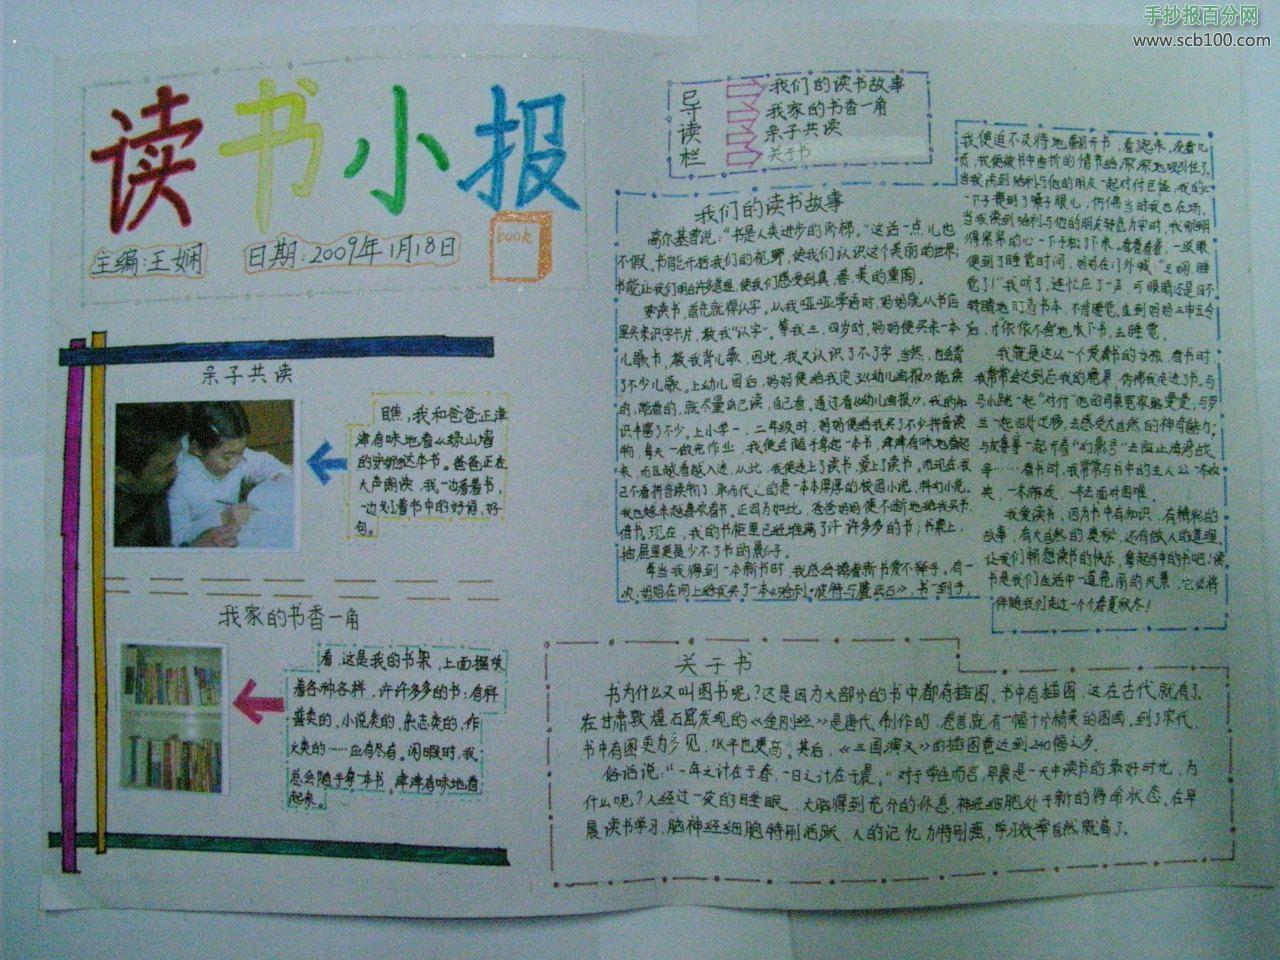 手抄报百分网
www.scb100.com
读书小报
主编:王娴
日期:2009年1月18日
book
导读栏
我们的读书故事
我家的书香一角
亲子共读
关于书
亲子共读
瞧,我和爸爸正津
津有味地看
这本书。爸爸正在
大声朗读,我一边看着书,
一边划着书中的好词,好
句。
我家的书香一角
看,这是我的书架,上面摆放
着各种各样,许许多多的书:有科
普类的,小说类的,杂志类的,作
文类的……应有尽有。闲暇时,我
总会随手拿一本书,津津有味地看
起来。
我们的读书故事
高尔基曾说:“书是人类进步的阶梯。”这话一点儿也
不假。书能开拓我们的视野,使我们认识这个美丽的世界;
书能让我们明白许多道理,使我们感受到真、善、美的熏陶。
要读书,首先就得认字。从我呀呀学语时,妈妈就从书店
里买来识字卡片,教我“认字”。等我三、四岁时,妈妈便买来一本本
儿歌书,教我背儿歌,因此,我又认识了不少字,当然,也会背
了不少儿歌。上幼儿园后,妈妈便给我定了《幼儿画报》,能读
的,能看的,就尽量自己读,自己看。通过看《幼儿画报》,我的知
识丰富了不少。上小学一、二年级时,妈妈便给我买了不少拼音读
物,每天一做完作业,我便会随手拿起一本书,津津有味地看起
来,而且越看越入迷,从此,我便走上了读书,爱上了读书。而现在我
已不看拼音读物了,取而代之的是一本本厚厚的校园小说,科幻小说。
我也越来越喜欢看书。正因为如此,爸爸妈妈便不断地给我买书、
借书。现在,我的书柜里已经堆满了许许多多的书;书桌上,
抽屉里更是少不了书的影子。
每当我得到一本新书时,我总会捧着新书爱不释手。有一
次,妈妈在网上给我买了一本《哈利·波特与魔法石》,书一到手,
我便迫不及待地翻开书,看起来,没看几
页,我便被书中曲折的情节给深深地吸引住了。
当我读到哈利与他的朋友一起对付巨怪,我的心
一下子提到了嗓子眼儿,仿佛当时我也在场。
当我读到哈利与他的朋友转危为安时,我那绷
得紧紧的心一下子松了下来。看着看着,一眨眼
便到了睡觉时间,妈妈在门外喊:“王娴,睡
觉了!”我听了,连忙应了一声,可眼睛还是目不
转睛地盯着书本,不肯睡觉。直到妈妈三申五令
后,才依依不舍地放下书,去睡觉。
我就是这么一个爱看书的女孩。看书时,
我常常会达到忘我的境界,仿佛我走进了书。与
马小跳一起“对付”他的同桌冤家路曼曼;与罗
去感受大自然的神奇魅力;
等……看书时,我常常与书中的主人公一本欢
笑,一本游戏,一本去面对困难。
我爱读书,因为书中有知识,有精彩的
故事,有大自然的奥秘,还有做人的道理。
让我们畅想读书的快乐,拿起手中的书吧!读
书是我们生活中一道亮丽的风景,它必将
伴随我们走过一个个春夏秋冬!
关于书
书为什么又叫图书呢?这是因为大部分的书中都有插图。书中有插图,这在古代就有了。
在甘肃敦煌石窟发现的《金刚经》是唐代制作的,卷首就有一幅十分精美的图画,到了宋代,
书中有图更为多见,水平也更高。其后,《三国演义》的插图竟达到240幅之多。
俗话说:“一年之计在于春,一日之计在于晨。”对于学生而言,早晨是一天中读书的最好时光,为
什么呢?人经过一夜的睡眠,大脑得到充分的休息,神经细胞处于新的待命状态,在早
晨读书学习,脑神经细胞特别活跃,人的记忆力特别强,学习效率自然就高了。